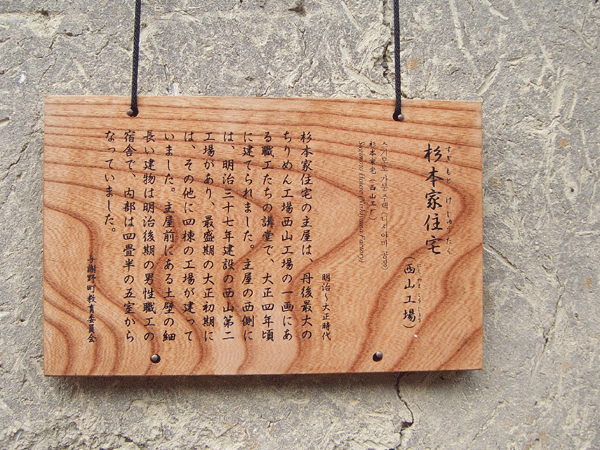 すぎもとけじゅうたく
杉本家住宅
にしやまこうじょう
（西山工場）
明治～大正時代
杉本家住宅の主屋は、丹後最大の
ちりめん工場西山工場の一画にあ
る職工たちの講堂で、大正四年頃
に建てられました。主屋の西側に
は、明治三十七年建設の西山第二
工場があり、最盛期の大正初期に
は、その他に四棟の工場が建って
いました。主屋前にある土壁の細
長い建物は明治後期の男性職工の
宿舎で、内部は四畳半の五室から
なっていました。
与謝野町教育委員会